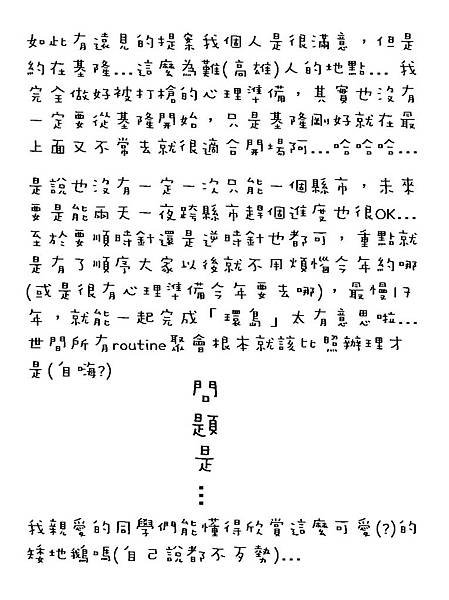 如此有遠見的提案我個人是很滿意，但是
約在基隆...這麼為難(高雄)人的地點... 我
完全做好被打槍的心理準備，其實也沒有
一定要從基隆開始，只是基隆剛好就在最
上面又不常去就很適合開場阿...哈哈哈...
是說也沒有一定一次只能一個縣市，未來
要是能兩天一夜跨縣市趕個進度也很OK...
至於要順時針還是逆時針也都可，重點就
是有了順序大家以後就不用煩惱今年約哪
(或是很有心理準備今年要去哪)，最慢17
年，就能一起完成「環島」太有意思啦...
世間所有routine聚會根本就該比照辦理才
是(自嗨?)
問
題
是
...
我親愛的同學們能懂得欣賞這麼可愛(?)的
矮地鵝嗎(自己說都不歹勢)...